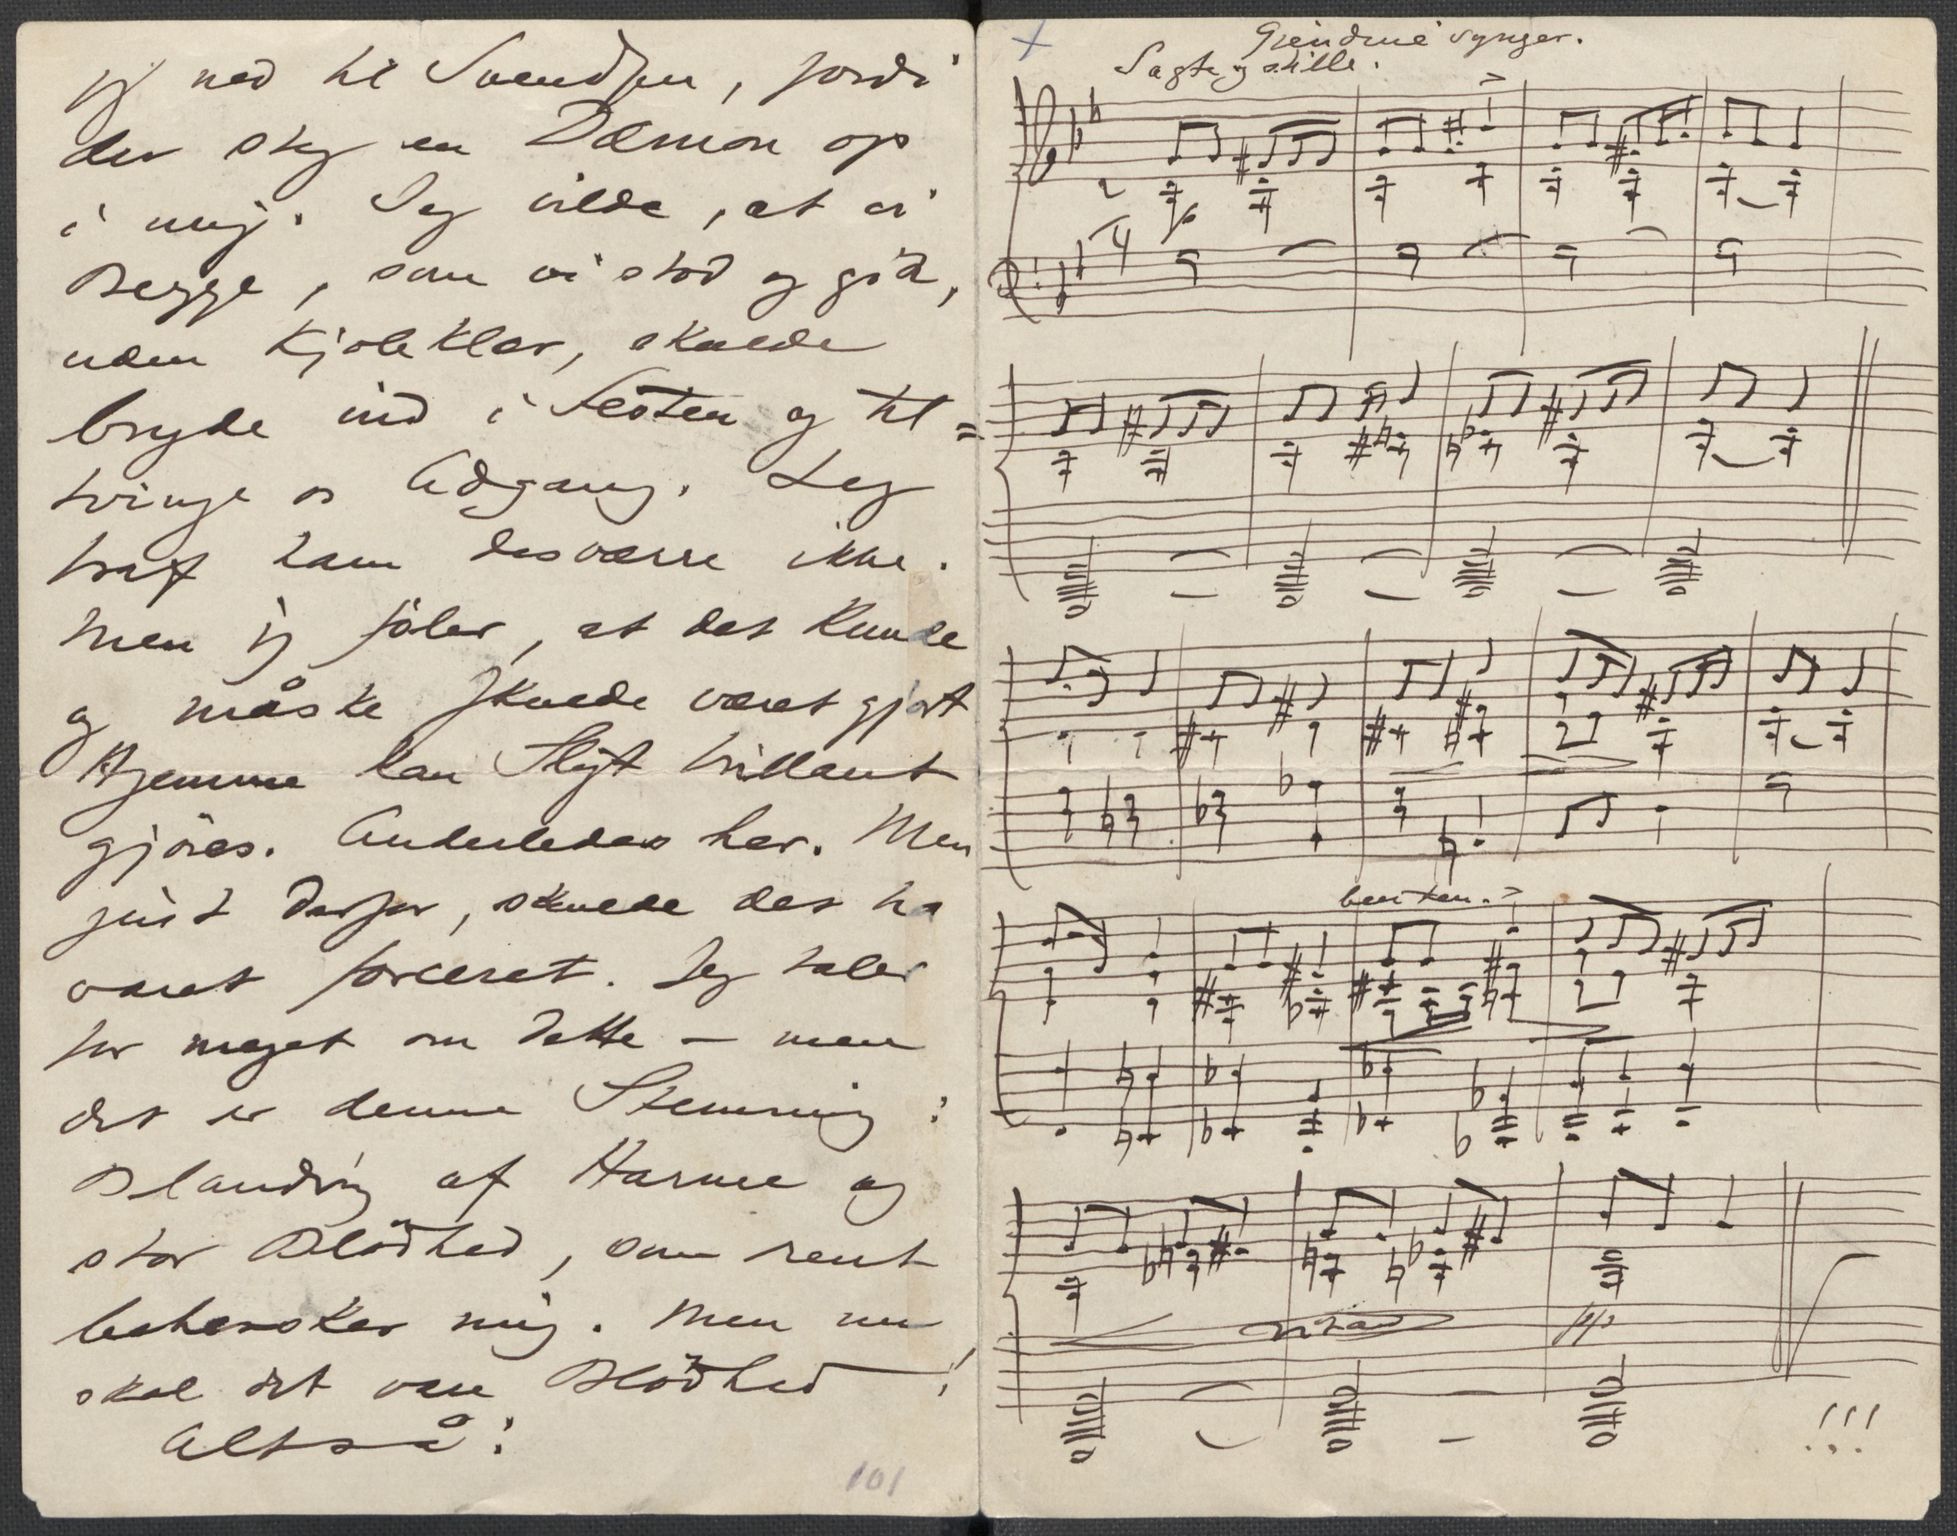 jeg ned til Svendsen, fordi
der steg en Dæmon op
i mig. Jeg vilde, at vi
Begge, som vi stod og gik,
uden Kjoleklær, skulde
bryde ind i Festen og til=
tvinge os Adgang. Jeg
traf ham desværre ikke.
Men jeg föler, at det kunde
og måske skulde været gjort
Hjemme kan Sligt brillant
gjöres. Anderledes her. Men
just derfor, skulde det ha
været forceret. Jeg taler
for meget om dette – men
det er denne Stemning:
Blanding af Harme og
stor Blödhed, som rent
behersker mig. Men nu
skal det være Blödhed – !
Altså:
101
Gjendine synger.
Sagte og stille.
ben ten.
ritard
ppp
!!!